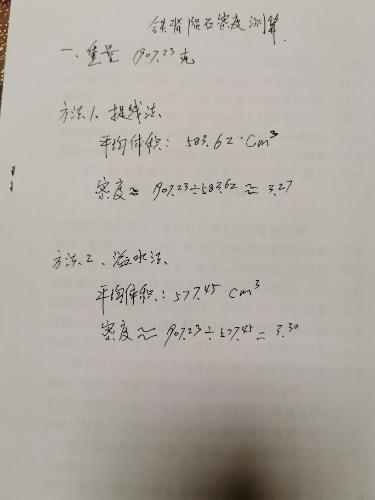 铁背陨石密度测算
一、重量 1907.23克
方法1、提线法、
平均体积: 583.62·Cm³
密度≈ 1907.23÷583.62≈3.27
方法2、溢水法、
平均体积: 577.45 cm³
密度≈1907.23÷577.45=3.30